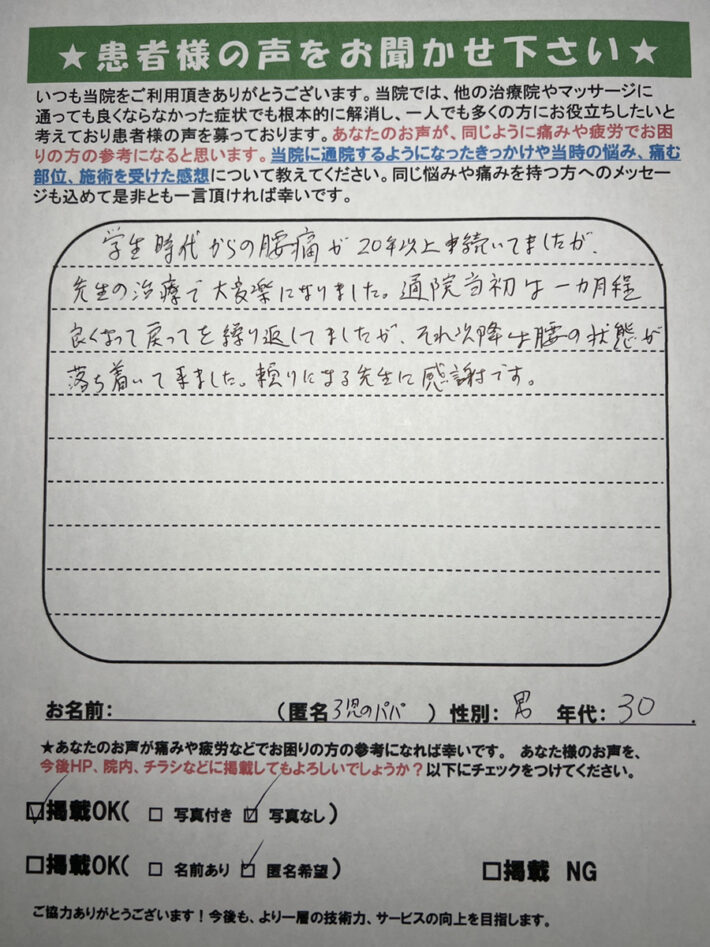 ★患者様の声をお聞かせ下さい★
いつも当院をご利用頂きありがとうございます。当院では、他の治療院やマッサージに
通っても良くならなかった症状でも根本的に解消し、一人でも多くの方にお役立ちしたいと
考えており患者様の声を募っております。あなたのお声が、同じように痛みや疲労でお困
りの方の参考になると思います。当院に通院するようになったきっかけや当時の悩み、痛む
部位、施術を受けた感想について教えてください。同じ悩みや痛みを持つ方へのメッセー
ジも込めて是非とも一言頂ければ幸いです。
学生時代からの腰痛が20年以上続いてましたが、
先生の治療で大変楽になりました。通院当初は一カ月程
良くなって戻ってを繰り返してましたが、それ以降は腰の状態が
落ち着いて来ました。頼りになる先生に感謝です。
お名前: (匿名 3児のパパ ) 性別: 男 年代: 30 .
★あなたのお声が痛みや疲労などでお困りの方の参考になれば幸いです。 あなた様のお声を、
今後HP、院内、チラシなどに掲載してもよろしいでしょうか?以下にチェックをつけてください。
☑掲載OK( □ 写真付き ☑ 写真なし)
□掲載OK( □ 名前あり ☑ 匿名希望) □掲載 NG
ご協力ありがとうございます!今後も、より一層の技術力、サービスの向上を目指します。